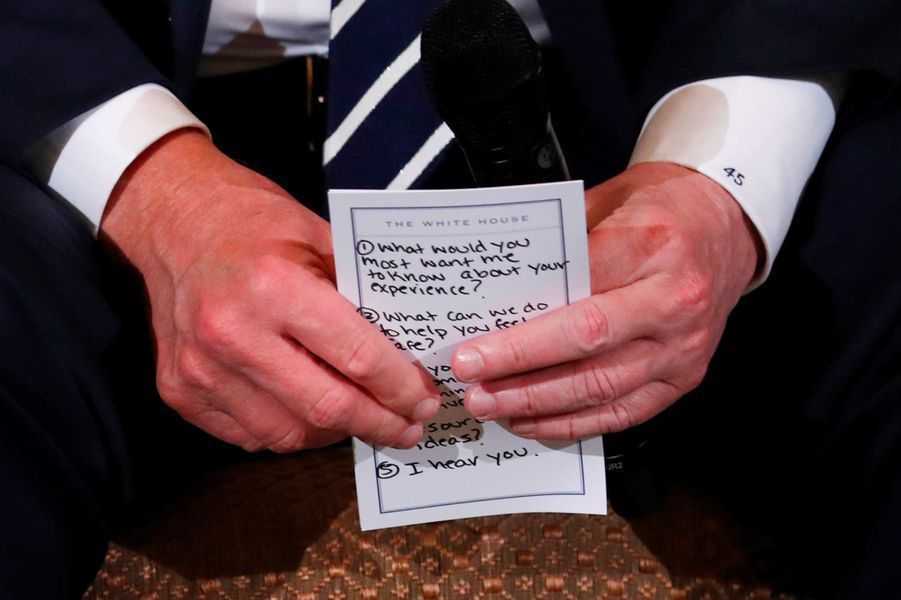 45
THE WHITE HOUSE
① What would you
most want me
to know about your
experience?
② What can we do
to help you feel
ideas?
⑤ I hear you.